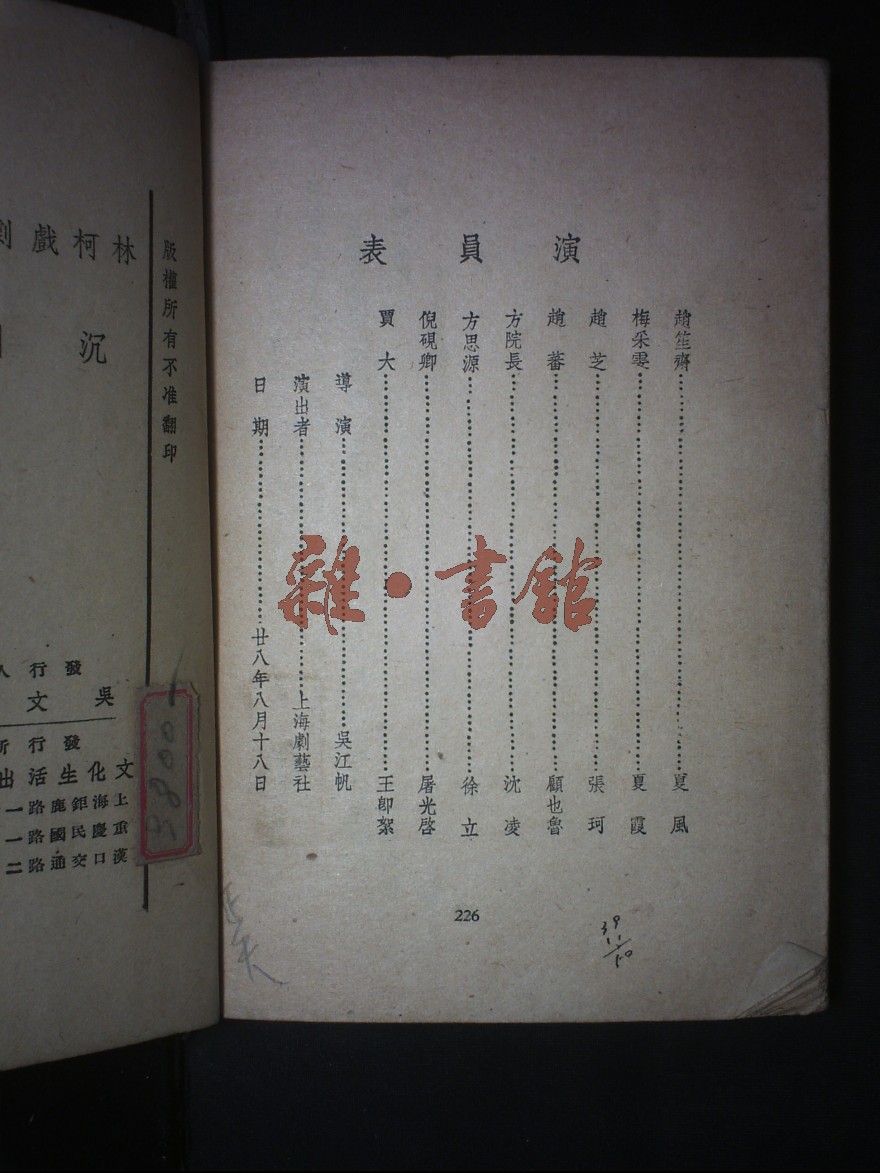 演員表
趙笙齋………夏風
梅采雯………夏霞
趙芝………張珂
趙蕃………顧也魯
方院長………沈凌
方思源………徐立
倪硯卿………屠光啓
賈大………王卽絮
導演………吳江帆
演出者………上海劇藝社
日期………廿八年八月十八日
226
39
11/10
雜·書館
版權所有不准翻印
林柯戲劇
沉
發行人
吳文
發行所
文化生活出
上海鉅鹿路一
重慶民國路一
漢口交通路二